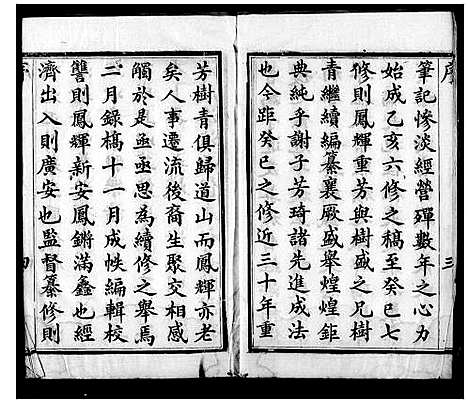 序
三
筆記慘淡經營殫數年之心力
始成乙亥六修之稿至癸巳七
修則鳳輝重芳與樹盛之兄樹
青繼續編纂襄厥盛舉煌煌鉅
典純乎謝子芳琦諸先進成法
也今距癸巳之修近三十年重
芳樹青俱歸道山而鳳輝亦老
矣人事遷流後裔生聚交相感
觸於是亟亟思為續修之舉焉
二月錄槁十一月成帙編輯校
讐則鳳輝新安鳳鏘滿鑫也經
濟出入則廣安也監督纂修則